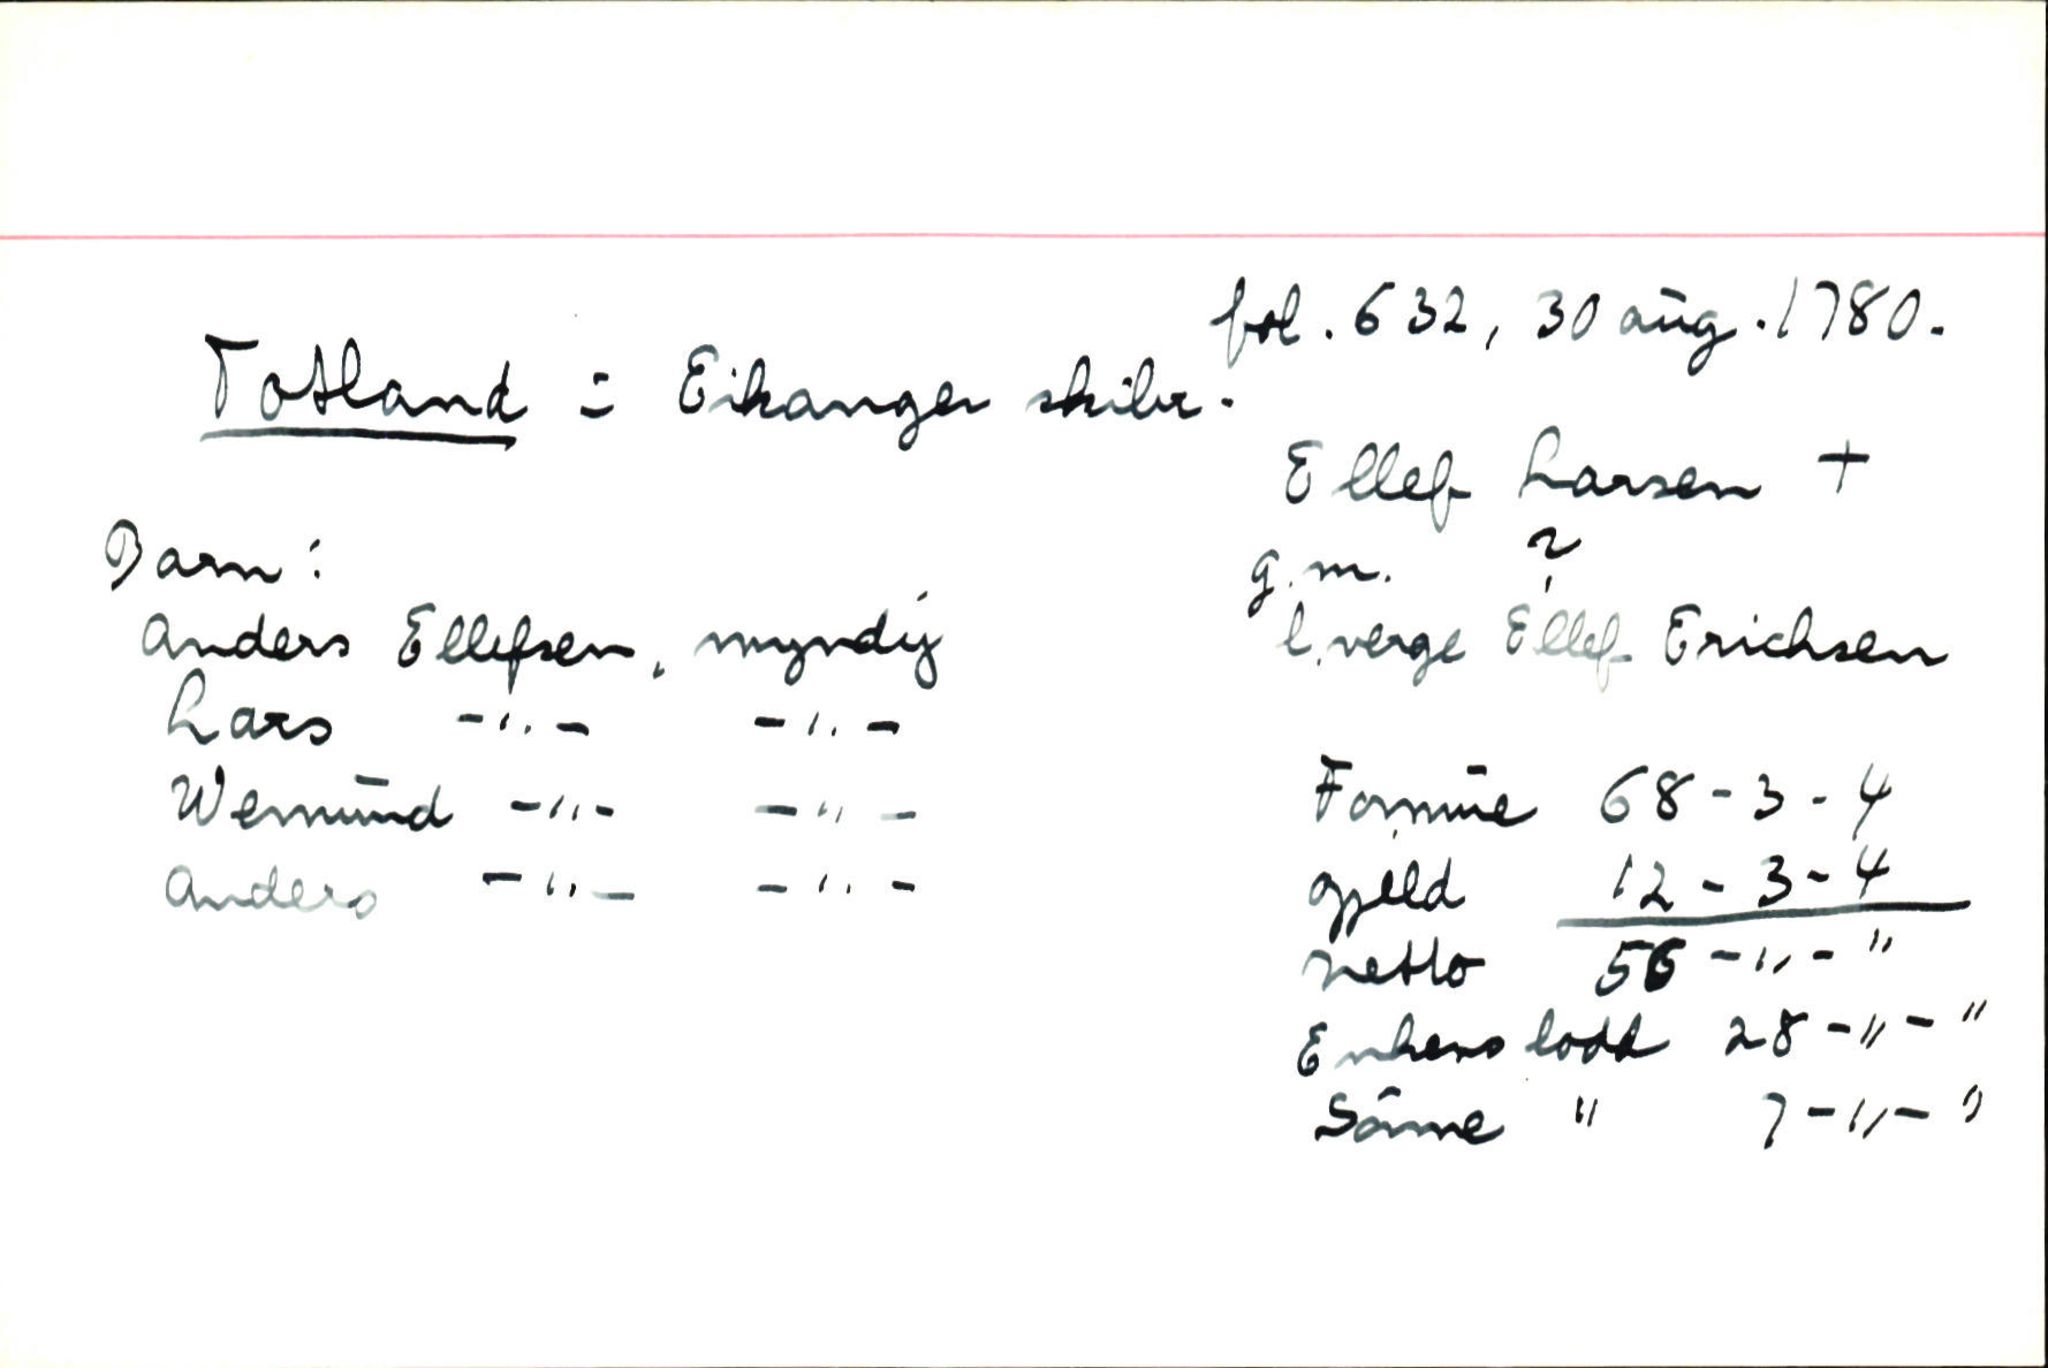 fol. 632, 30 aug. 1780.
Totland = Eikanger skibr.
Ellef Larsen +
g.m. ?
l. verge Ellef Erichsen
Barn:
Anders Ellefsen, myndig
Lars -"- -"-
Wemund -"- -"-
Anders -"- -"-
Formue 68-3-4
gjeld 12-3-4
netto 56-"-"
Enkens lodd 28-"-"
Sönne " 7-"-"